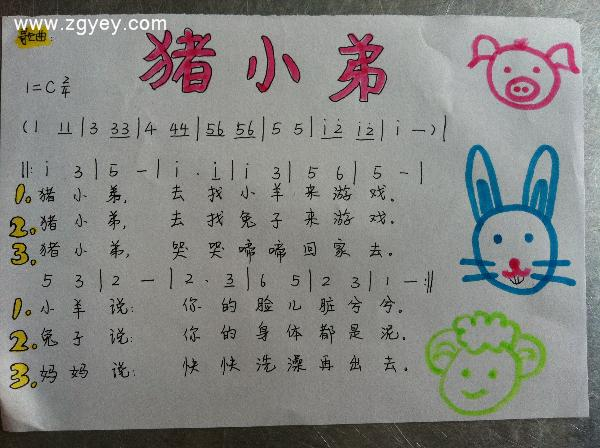 www.zgyey.com
歌曲:
猪小弟
1=C 2/4
(1 11 | 3 33 | 4 44 | 56 56 | 5 5 | i2 i2 | i — )|
‖: i 3 | 5 — | i . i | i 3 | 5 6 | 5 — |
1. 猪小弟, 去找小羊来游戏.
2. 猪小弟, 去找兔子来游戏.
3. 猪小弟, 哭哭啼啼回家去.
5 3 | 2 — | 2 . 3 | 6 5 | 2 3 | 1 — :‖
1. 小羊说: 你的脸儿脏兮兮.
2. 兔子说: 你的身体都是泥.
3. 妈妈说: 快快洗澡再出去.